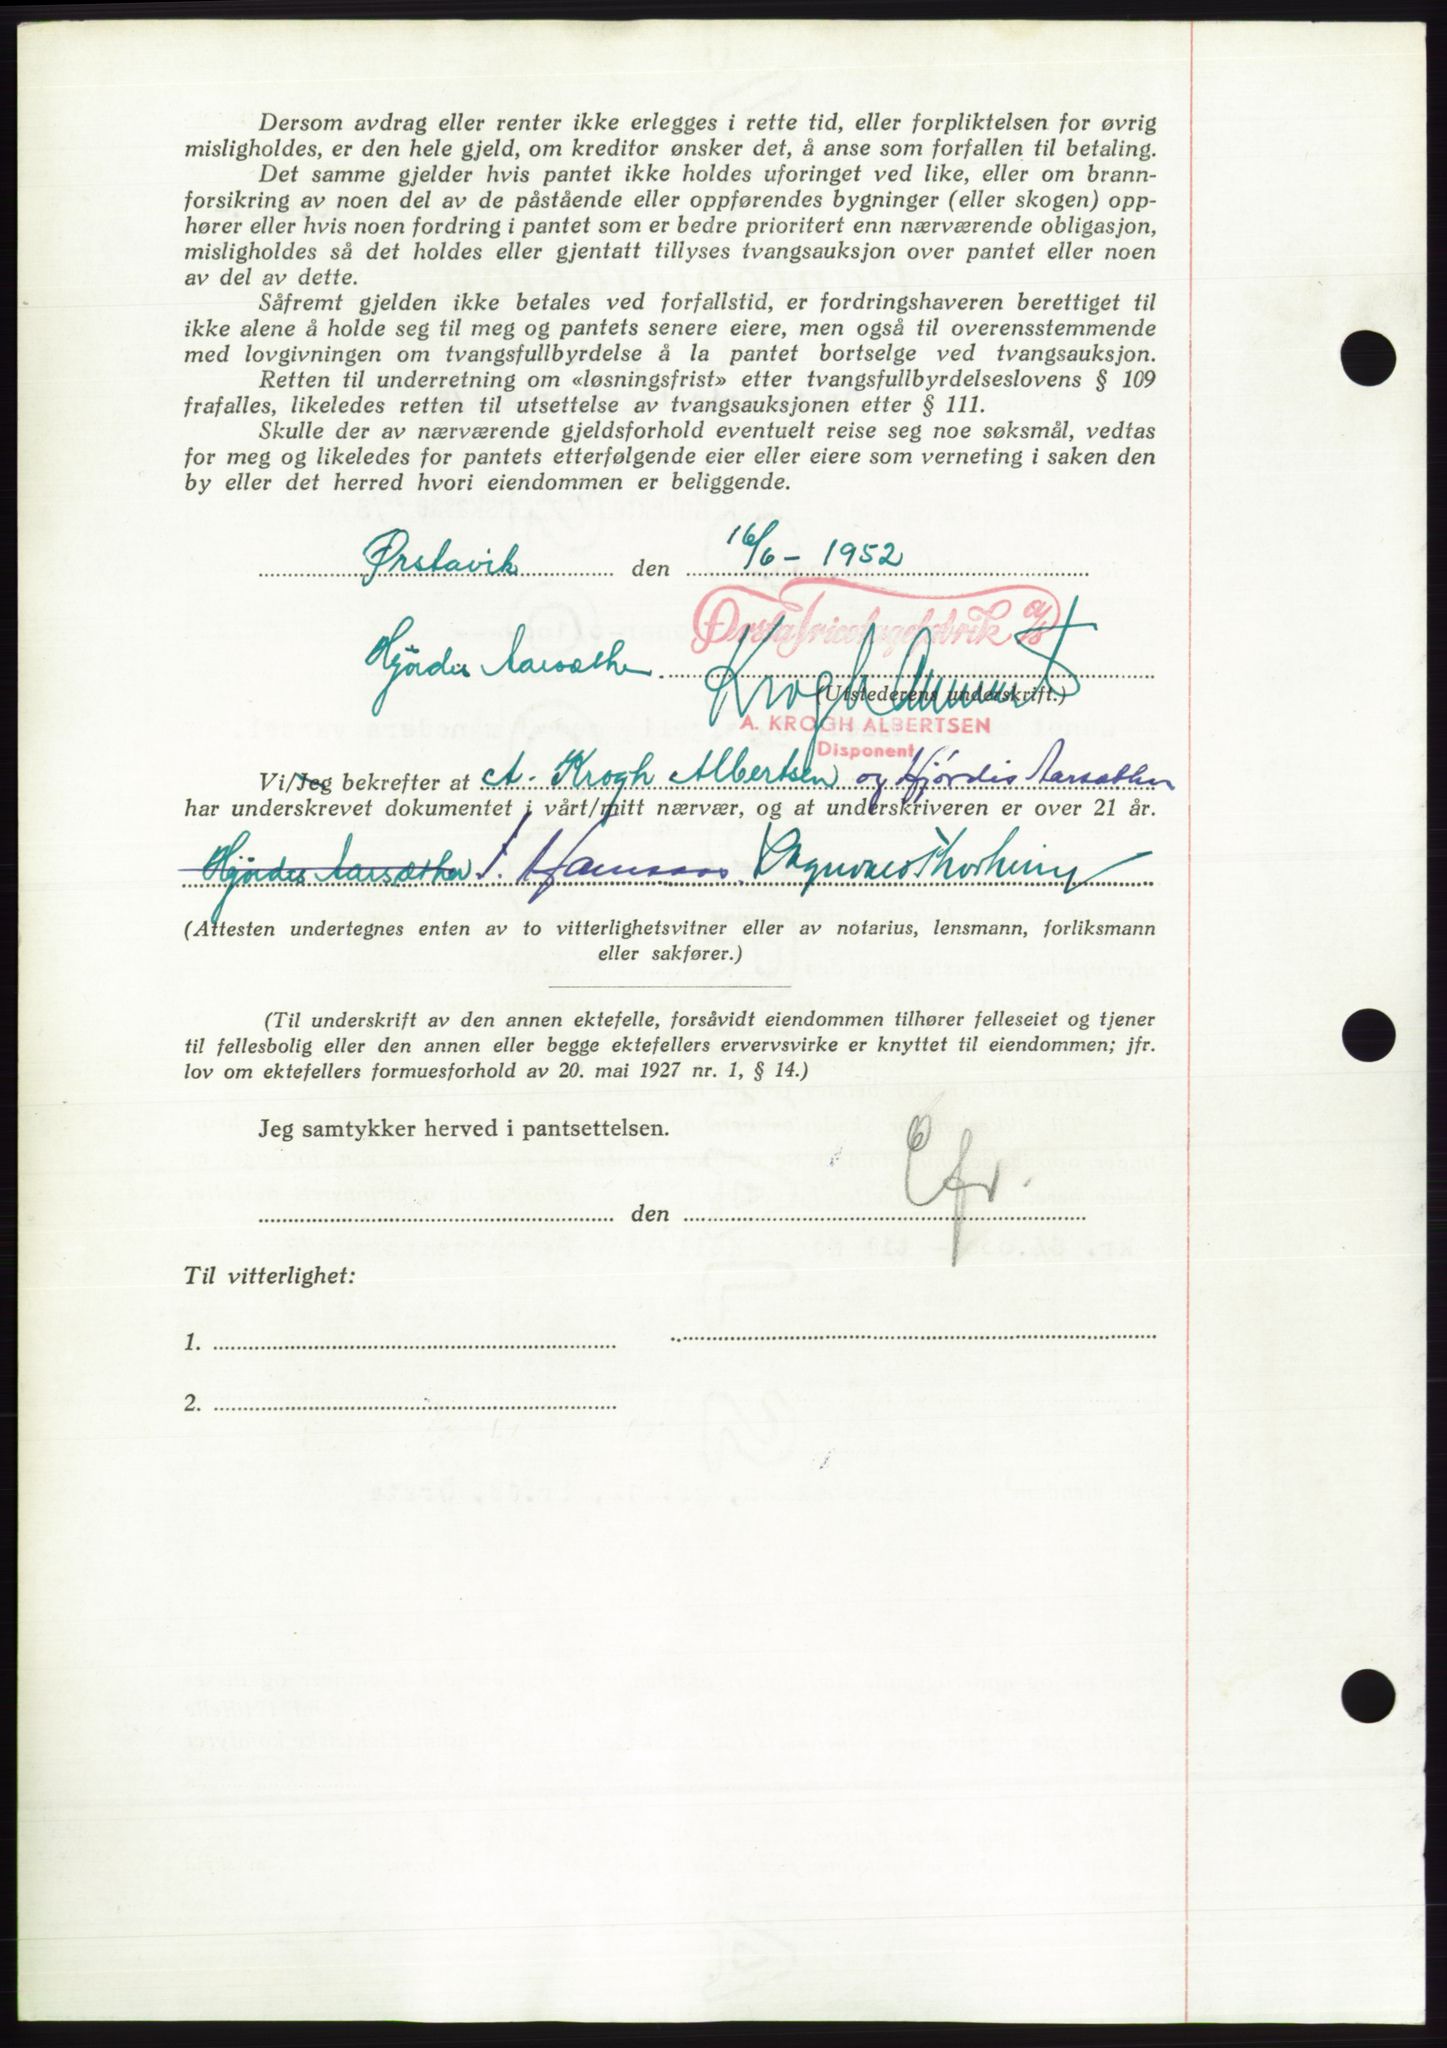 Dersom avdrag eller renter ikke erlegges i rette tid, eller forpliktelsen for øvrig
misligholdes, er den hele gjeld, om kreditor ønsker det, å anse som forfallen til betaling.
Det samme gjelder hvis pantet ikke holdes uforinget ved like, eller om brann-
forsikring av noen del av de påstående eller oppførendes bygninger (eller skogen) opp-
hører eller hvis noen fordring i pantet som er bedre prioritert enn nærværende obligasjon,
misligholdes så det holdes eller gjentatt tillyses tvangsauksjon over pantet eller noen
av del av dette.
Såfremt gjelden ikke betales ved forfallstid, er fordringshaveren berettiget til
ikke alene å holde seg til meg og pantets senere eiere, men også til overensstemmende
med lovgivningen om tvangsfullbyrdelse å la pantet bortselge ved tvangsauksjon.
Retten til underretning om «løsningsfrist» etter tvangsfullbyrdelseslovens § 109
frafalles, likeledes retten til utsettelse av tvangsauksjonen etter § 111.
Skulle der av nærværende gjeldsforhold eventuelt reise seg noe søksmål, vedtas
for meg og likeledes for pantets etterfølgende eier eller eiere som verneting i saken den
by eller det herred hvori eiendommen er beliggende.
Ørstavik den 16/6 - 1952
Ørsta Tricotagefabrik A/S
Hjördis Aarsæther. Krogh
(Utstederens underskrift.)
A. KROGH ALBERTSEN
Disponent
Vi/Jeg bekrefter at A. Krogh Albertsen og Hjørdis Aarsæther
har underskrevet dokumentet i vårt/mitt nærvær, og at underskriveren er over 21 år.
Hjördis Aarsæther
(Attesten undertegnes enten av to vitterlighetsvitner eller av notarius, lensmann, forliksmann
eller sakfører.)
(Til underskrift av den annen ektefelle, forsåvidt eiendommen tilhører felleseiet og tjener
til fellesbolig eller den annen eller begge ektefellers ervervsvirke er knyttet til eiendommen; jfr.
lov om ektefellers formuesforhold av 20. mai 1927 nr. 1, § 14.)
Jeg samtykker herved i pantsettelsen.
Efr.
den
Til vitterlighet:
1.
2.